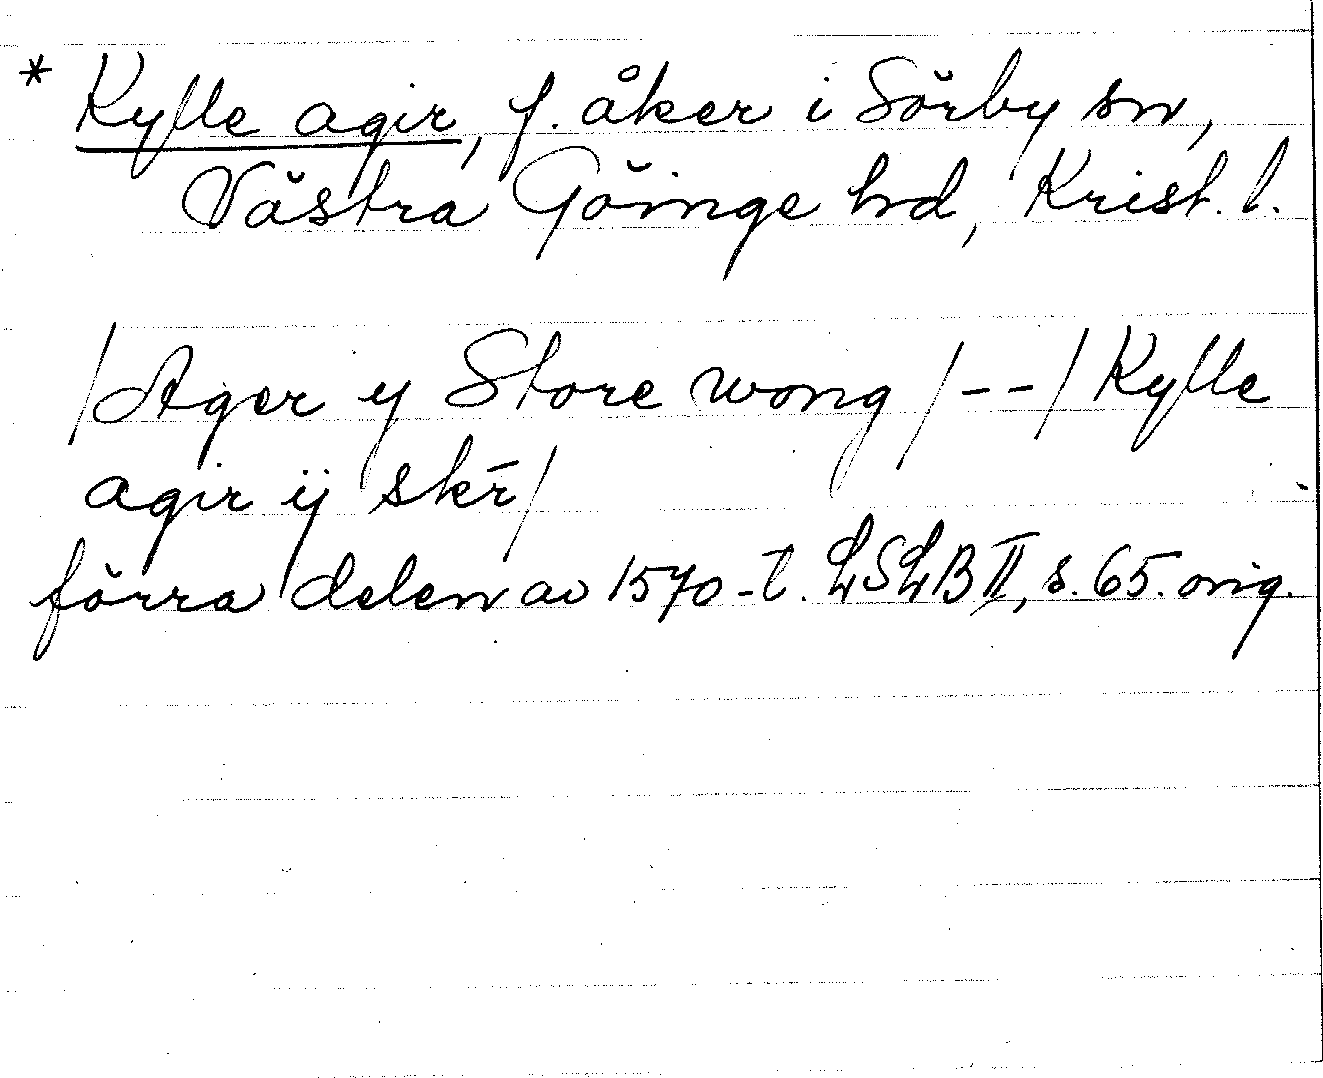 * Kylle agir, f. åker i Sörby sn,
Västra Göinge hd, Krist. l.
/Ager y Store wong /--/ Kylle
agir ij skr̄/
förra delen av 1570-t. LSLB II, s. 65. orig.